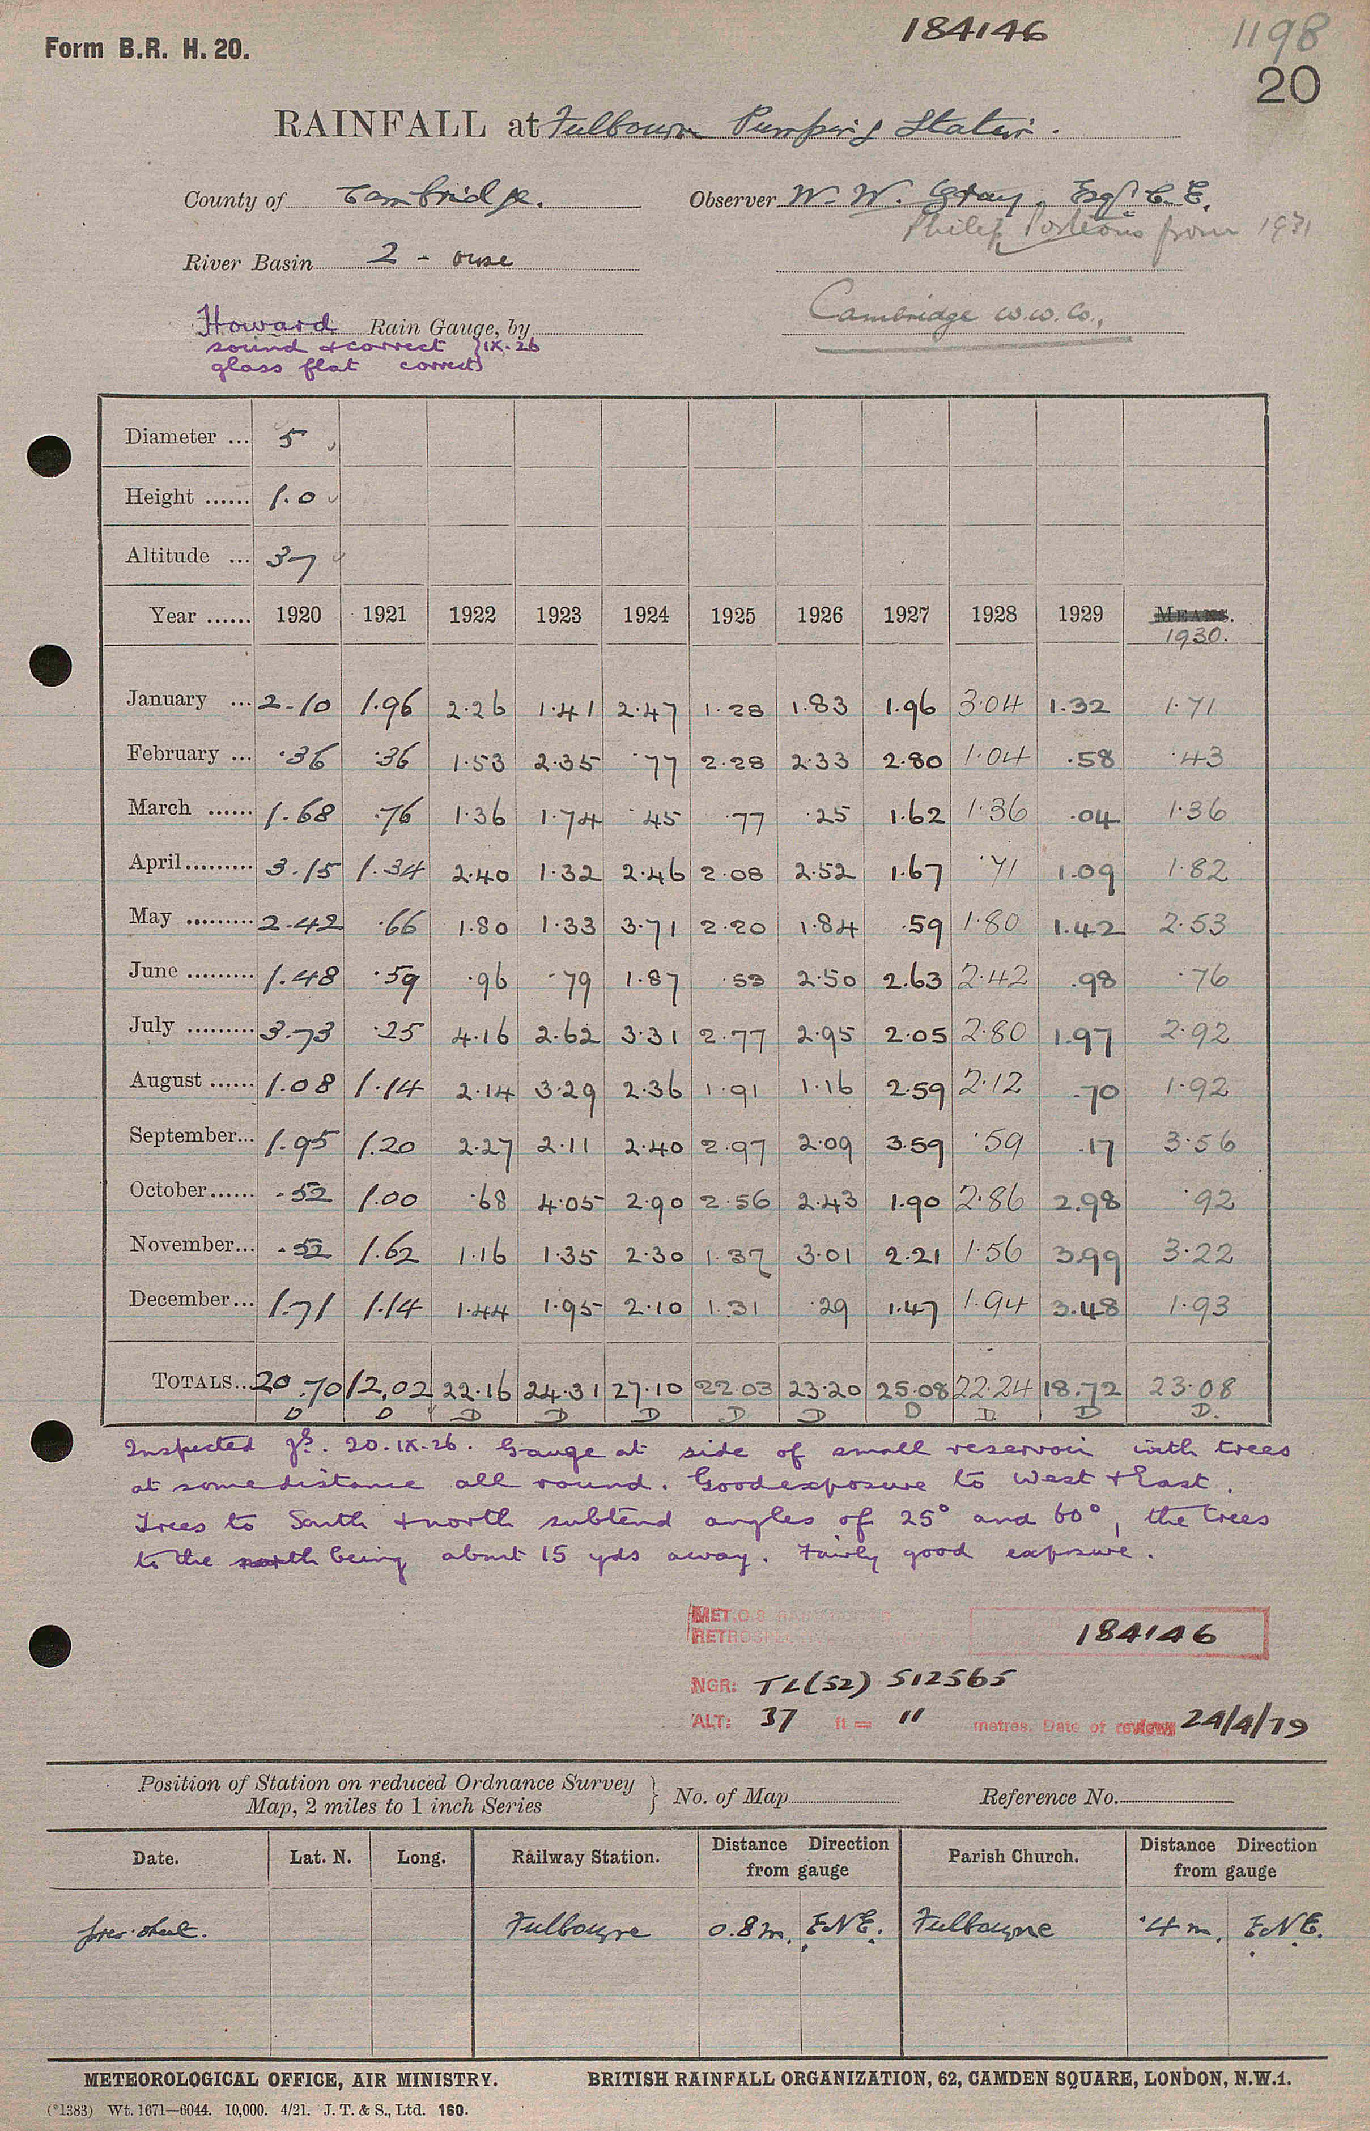 184146 1198
Form B.R. H. 20. 20
RAINFALL at Fulbourn Pumping Station.
County of Cambridge. Observer W. W. Gray, Esqr C.E.
Philip Porteous from 1931
River Basin 2 - ouse
Howard Rain Gauge, by Cambridge W.W. Co.,
sound & correct } IX-26
glass flat correct
Diameter ... 5
Height ...... 1.0
Altitude ... 37
Year ...... 1920 1921 1922 1923 1924 1925 1926 1927 1928 1929 MEANS.
1930.
January ... 2.10 1.96 2.26 1.41 2.47 1.28 1.83 1.96 3.04 1.32 1.71
February ... .36 .36 1.53 2.35 .77 2.28 2.33 2.80 1.04 .58 .43
March ...... 1.68 .76 1.36 1.74 .45 .77 .25 1.62 1.36 .04 1.36
April ......... 3.15 1.34 2.40 1.32 2.46 2.08 2.52 1.67 .71 1.09 1.82
May ......... 2.42 .66 1.80 1.33 3.71 2.20 1.84 .59 1.80 1.42 2.53
June ......... 1.48 .59 .96 .79 1.87 .53 2.50 2.63 2.42 .98 .76
July ......... 3.73 .25 4.16 2.62 3.31 2.77 2.95 2.05 2.80 1.97 2.92
August ...... 1.08 1.14 2.14 3.29 2.36 1.91 1.16 2.59 2.12 .70 1.92
September... 1.95 1.20 2.27 2.11 2.40 2.97 2.09 3.59 .59 .17 3.56
October...... .52 1.00 .68 4.05 2.90 2.56 2.43 1.90 2.86 2.98 .92
November... .52 1.62 1.16 1.35 2.30 1.37 3.01 2.21 1.56 3.99 3.22
December... 1.71 1.14 1.44 1.95 2.10 1.31 .29 1.47 1.94 3.48 1.93
TOTALS... 20.70 12.02 22.16 24.31 27.10 22.03 23.20 25.08 22.24 18.72 23.08
D D D D D D D D D D D.
Inspected 20.IX.26. Gauge at side of small reservoir with trees
at some distance all round. Good exposure to West & East.
Trees to South & north subtend angles of 25° and 60°, the trees
to the north being about 15 yds away. Fairly good exposure.
MET.O.8
184146
NGR: TL(52) 512565
ALT: 37 ft = 11 metres. Date of review 24/4/79
Position of Station on reduced Ordnance Survey } No. of Map Reference No.
Map, 2 miles to 1 inch Series
Date. Lat. N. Long. Railway Station. Distance Direction from gauge Parish Church. Distance Direction from gauge
prev. sheet. Fulbourne 0.8 m. E.N.E. Fulbourne .4 m. E.N.E.
METEOROLOGICAL OFFICE, AIR MINISTRY. BRITISH RAINFALL ORGANIZATION, 62, CAMDEN SQUARE, LONDON, N.W.1.
(*1383) Wt. 1671—6044. 10,000. 4/21. J. T. & S., Ltd. 160.